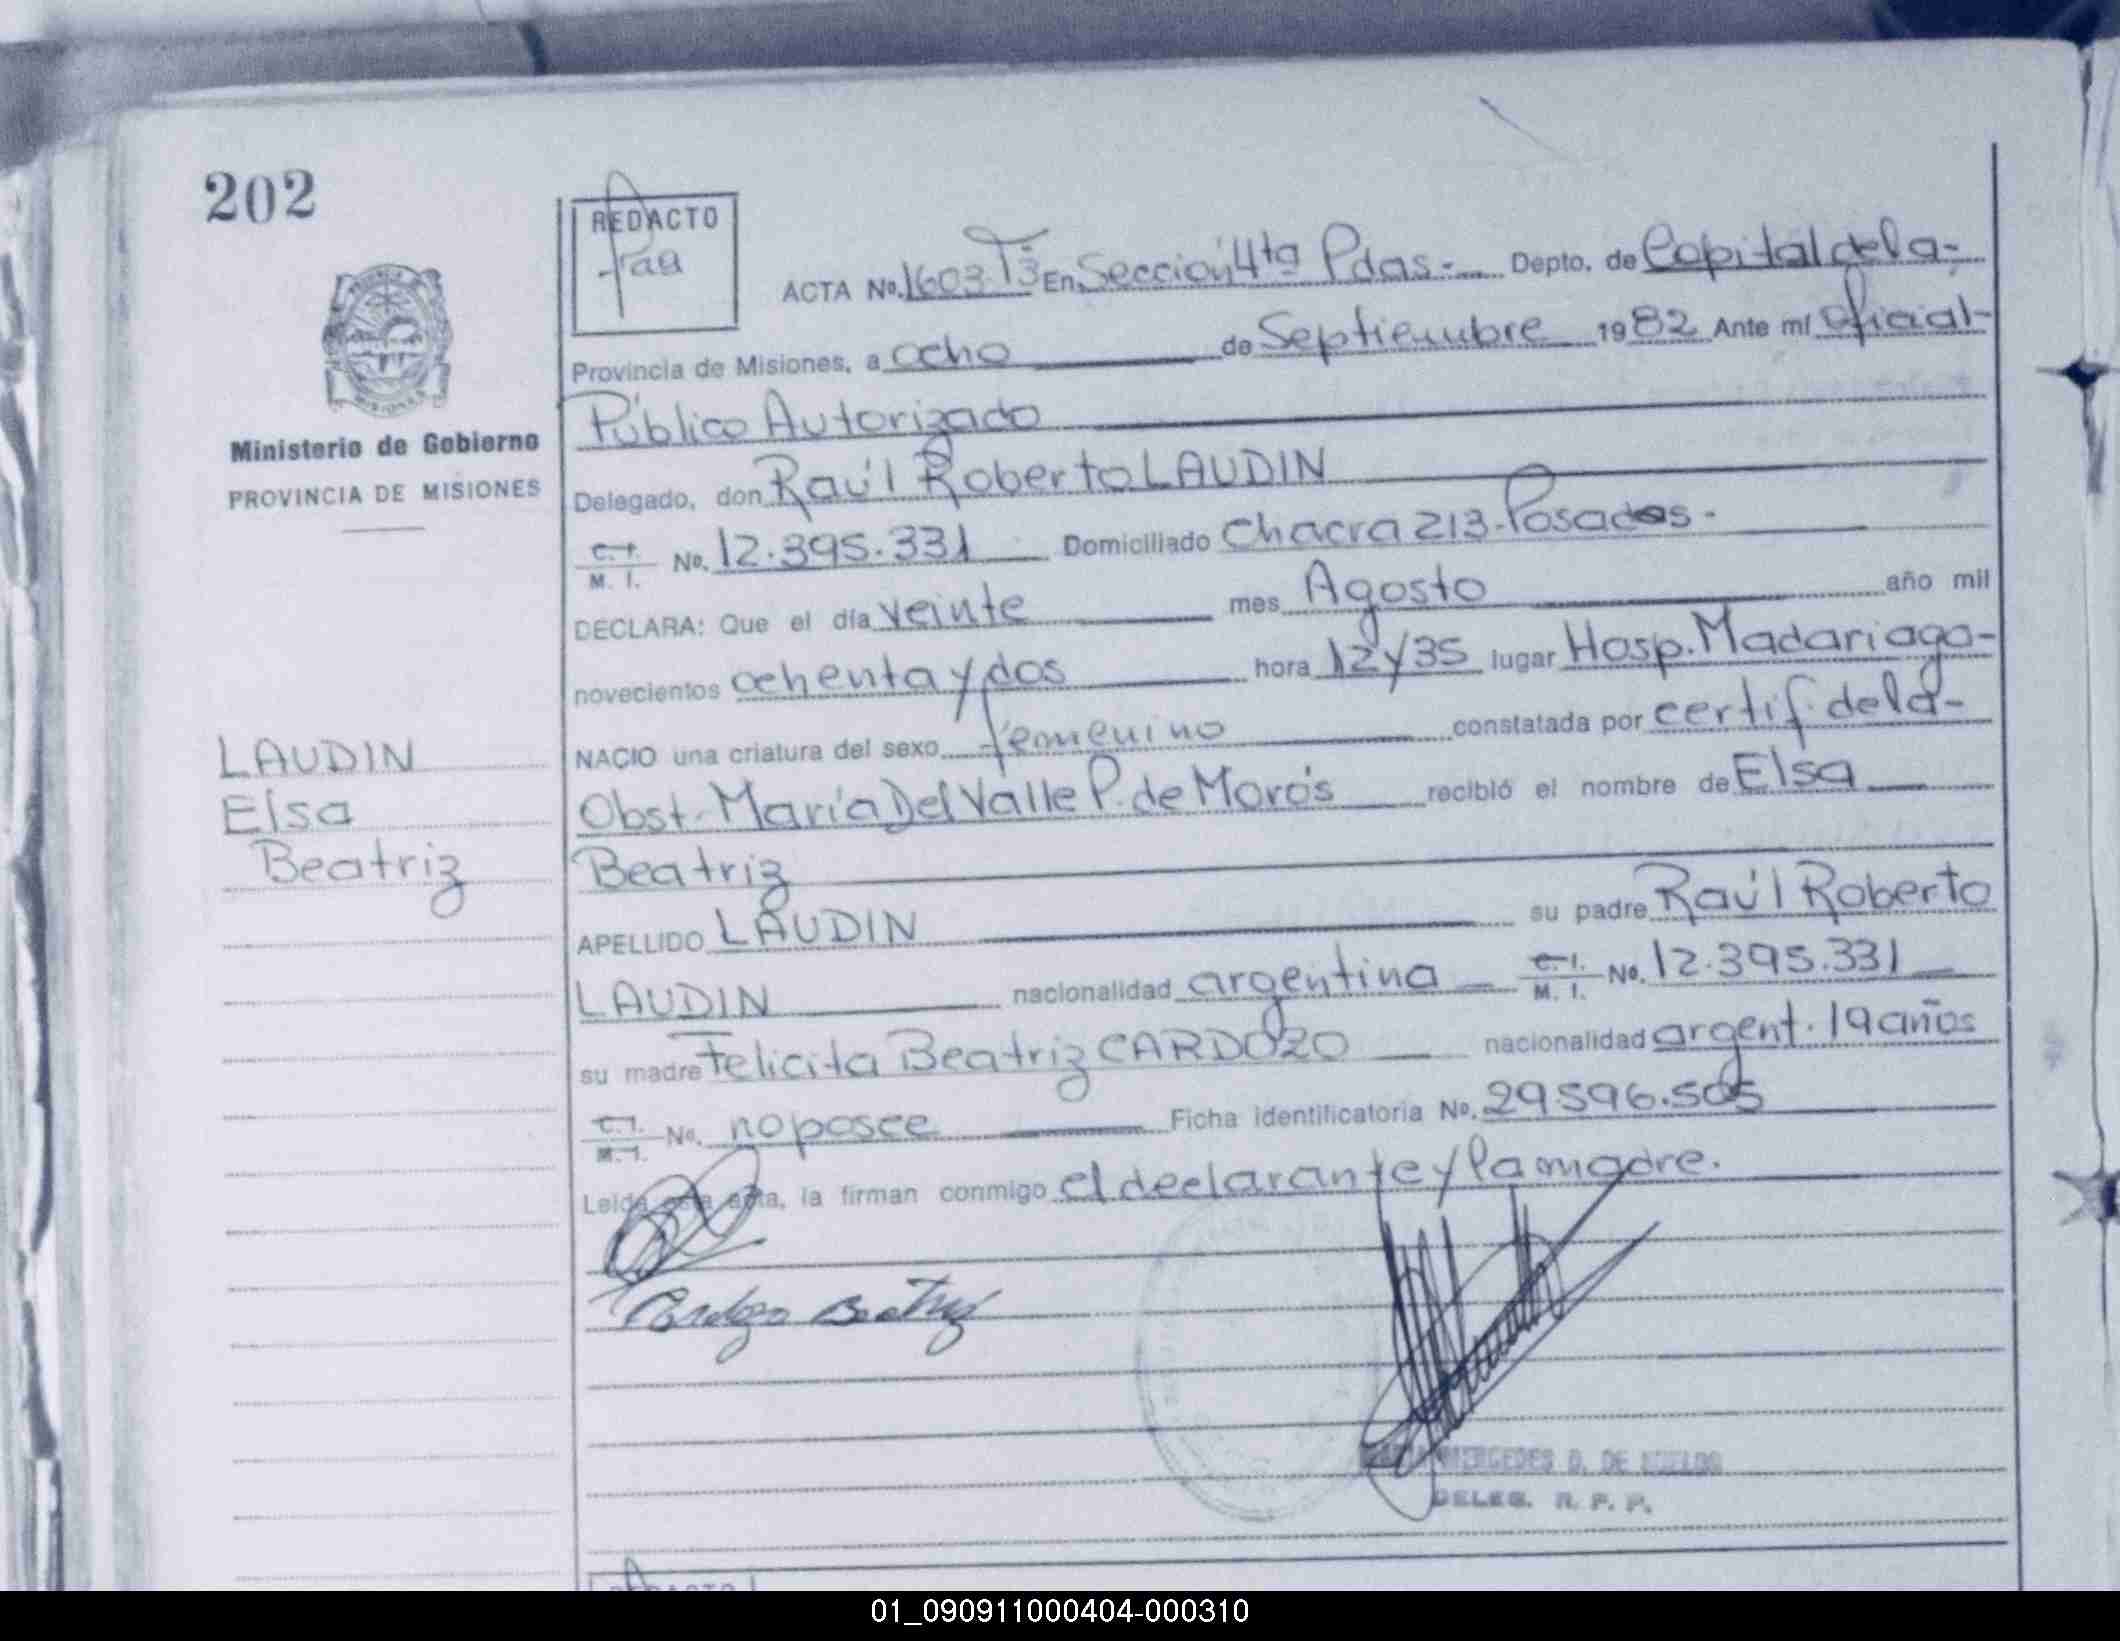 202
REDACTO
ACTA No. 1603 T3 En Sección 4ta Pdas.- Depto. de Capital de la-
Provincia de Misiones, a ocho de Septiembre 1982 Ante mí Oficial-
Público Autorizado
Ministerio de Gobierno
PROVINCIA DE MISIONES
Delegado, don Raúl Roberto LAUDIN
C. I. M. I. No. 12.395.331 Domiciliado Chacra 213-Posadas-
DECLARA: Que el día veinte mes Agosto año mil
novecientos ochenta y dos hora 12 y 35 lugar Hosp. Madariaga-
NACIO una criatura del sexo femenino constatada por certif. de la-
Obst. María Del Valle P. de Morós recibió el nombre de Elsa
Beatriz
LAUDIN
Elsa
Beatriz
APELLIDO LAUDIN su padre Raúl Roberto
LAUDIN nacionalidad argentina C. I. M. I. No. 12.395.331
su madre Felicita Beatriz CARDOZO nacionalidad argent. 19 años
C. I. M. I. No. no posee Ficha identificatoria No. 29596.505
Leida esta acta, la firman conmigo el declarante y la madre.
Cardozo Beatriz
MERCEDES D. DE
DELEG. R. P. P.
01_090911000404-000310